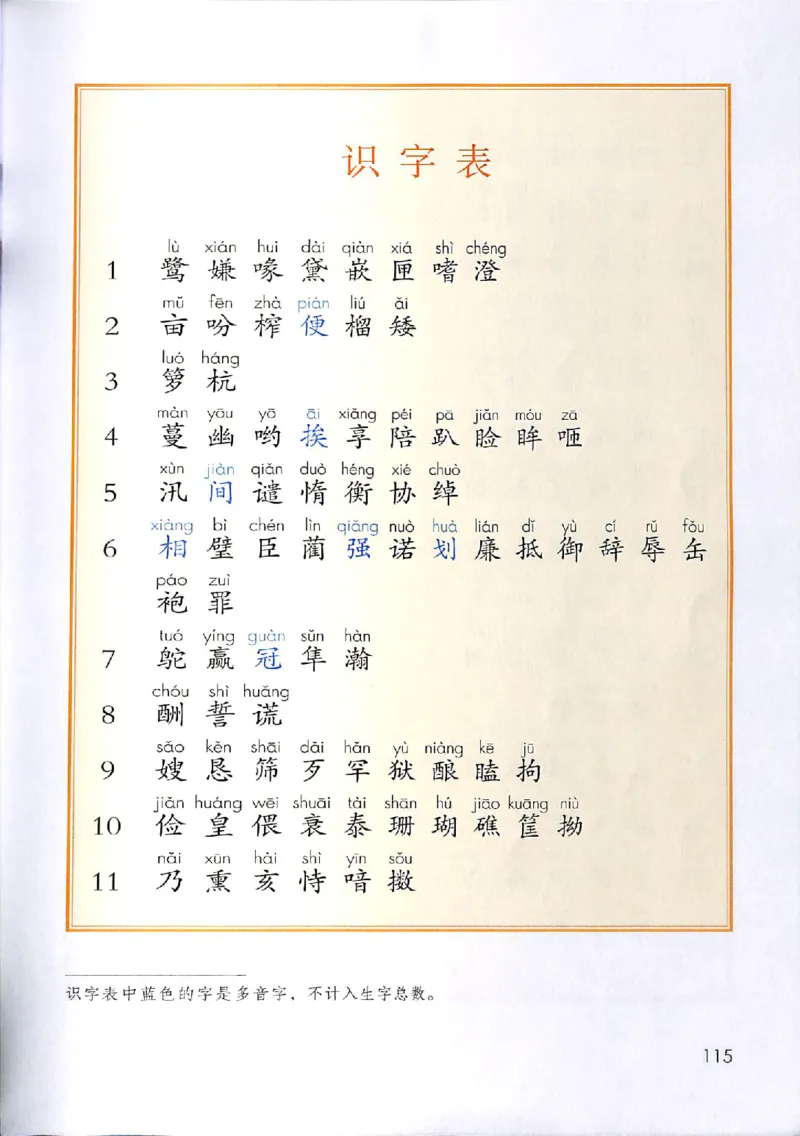 识字表
lù xián huì dài qiàn xiá shì chéng
1 鹭 嫌 喙 黛 嵌 匣 嗜 澄
mǔ fēn zhà pián liú ǎi
2 亩 吩 榨 便 榴 矮
luó háng
3 箩 杭
màn yōu yō āi xiǎng péi pā jiǎn móu zā
4 蔓 幽 哟 挨 享 陪 趴 睑 眸 咂
xùn jiàn qiǎn duò héng xié chuò
5 汛 间 谴 惰 衡 协 绰
xiàng bì chén lìn qiǎng nuò huà lián dǐ yù cí rǔ fǒu
6 相 璧 臣 蔺 强 诺 划 廉 抵 御 辞 辱 缶
páo zuì
袍 罪
tuó yíng guàn sǔn hàn
7 鸵 赢 冠 隼 瀚
chóu shì huǎng
8 酬 誓 谎
sǎo kěn shāi dǎi hǎn yù niàng kē jū
9 嫂 恳 筛 歹 罕 狱 酿 瞌 拘
jiǎn huáng wēi shuāi tài shān hú jiāo kuāng niù
10 俭 皇 偎 衰 泰 珊 瑚 礁 筐 拗
nǎi xūn hài shì yīn sǒu
11 乃 熏 亥 恃 喑 擞
识字表中蓝色的字是多音字，不计入生字总数。
115